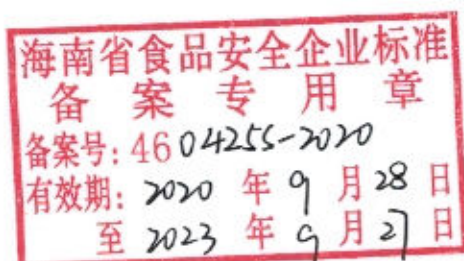 海南省食品安全企业标准
备案专用章
备案号: 4604255-2020
有效期: 2020 年 9 月 28 日
至 2023 年 9 月 27 日